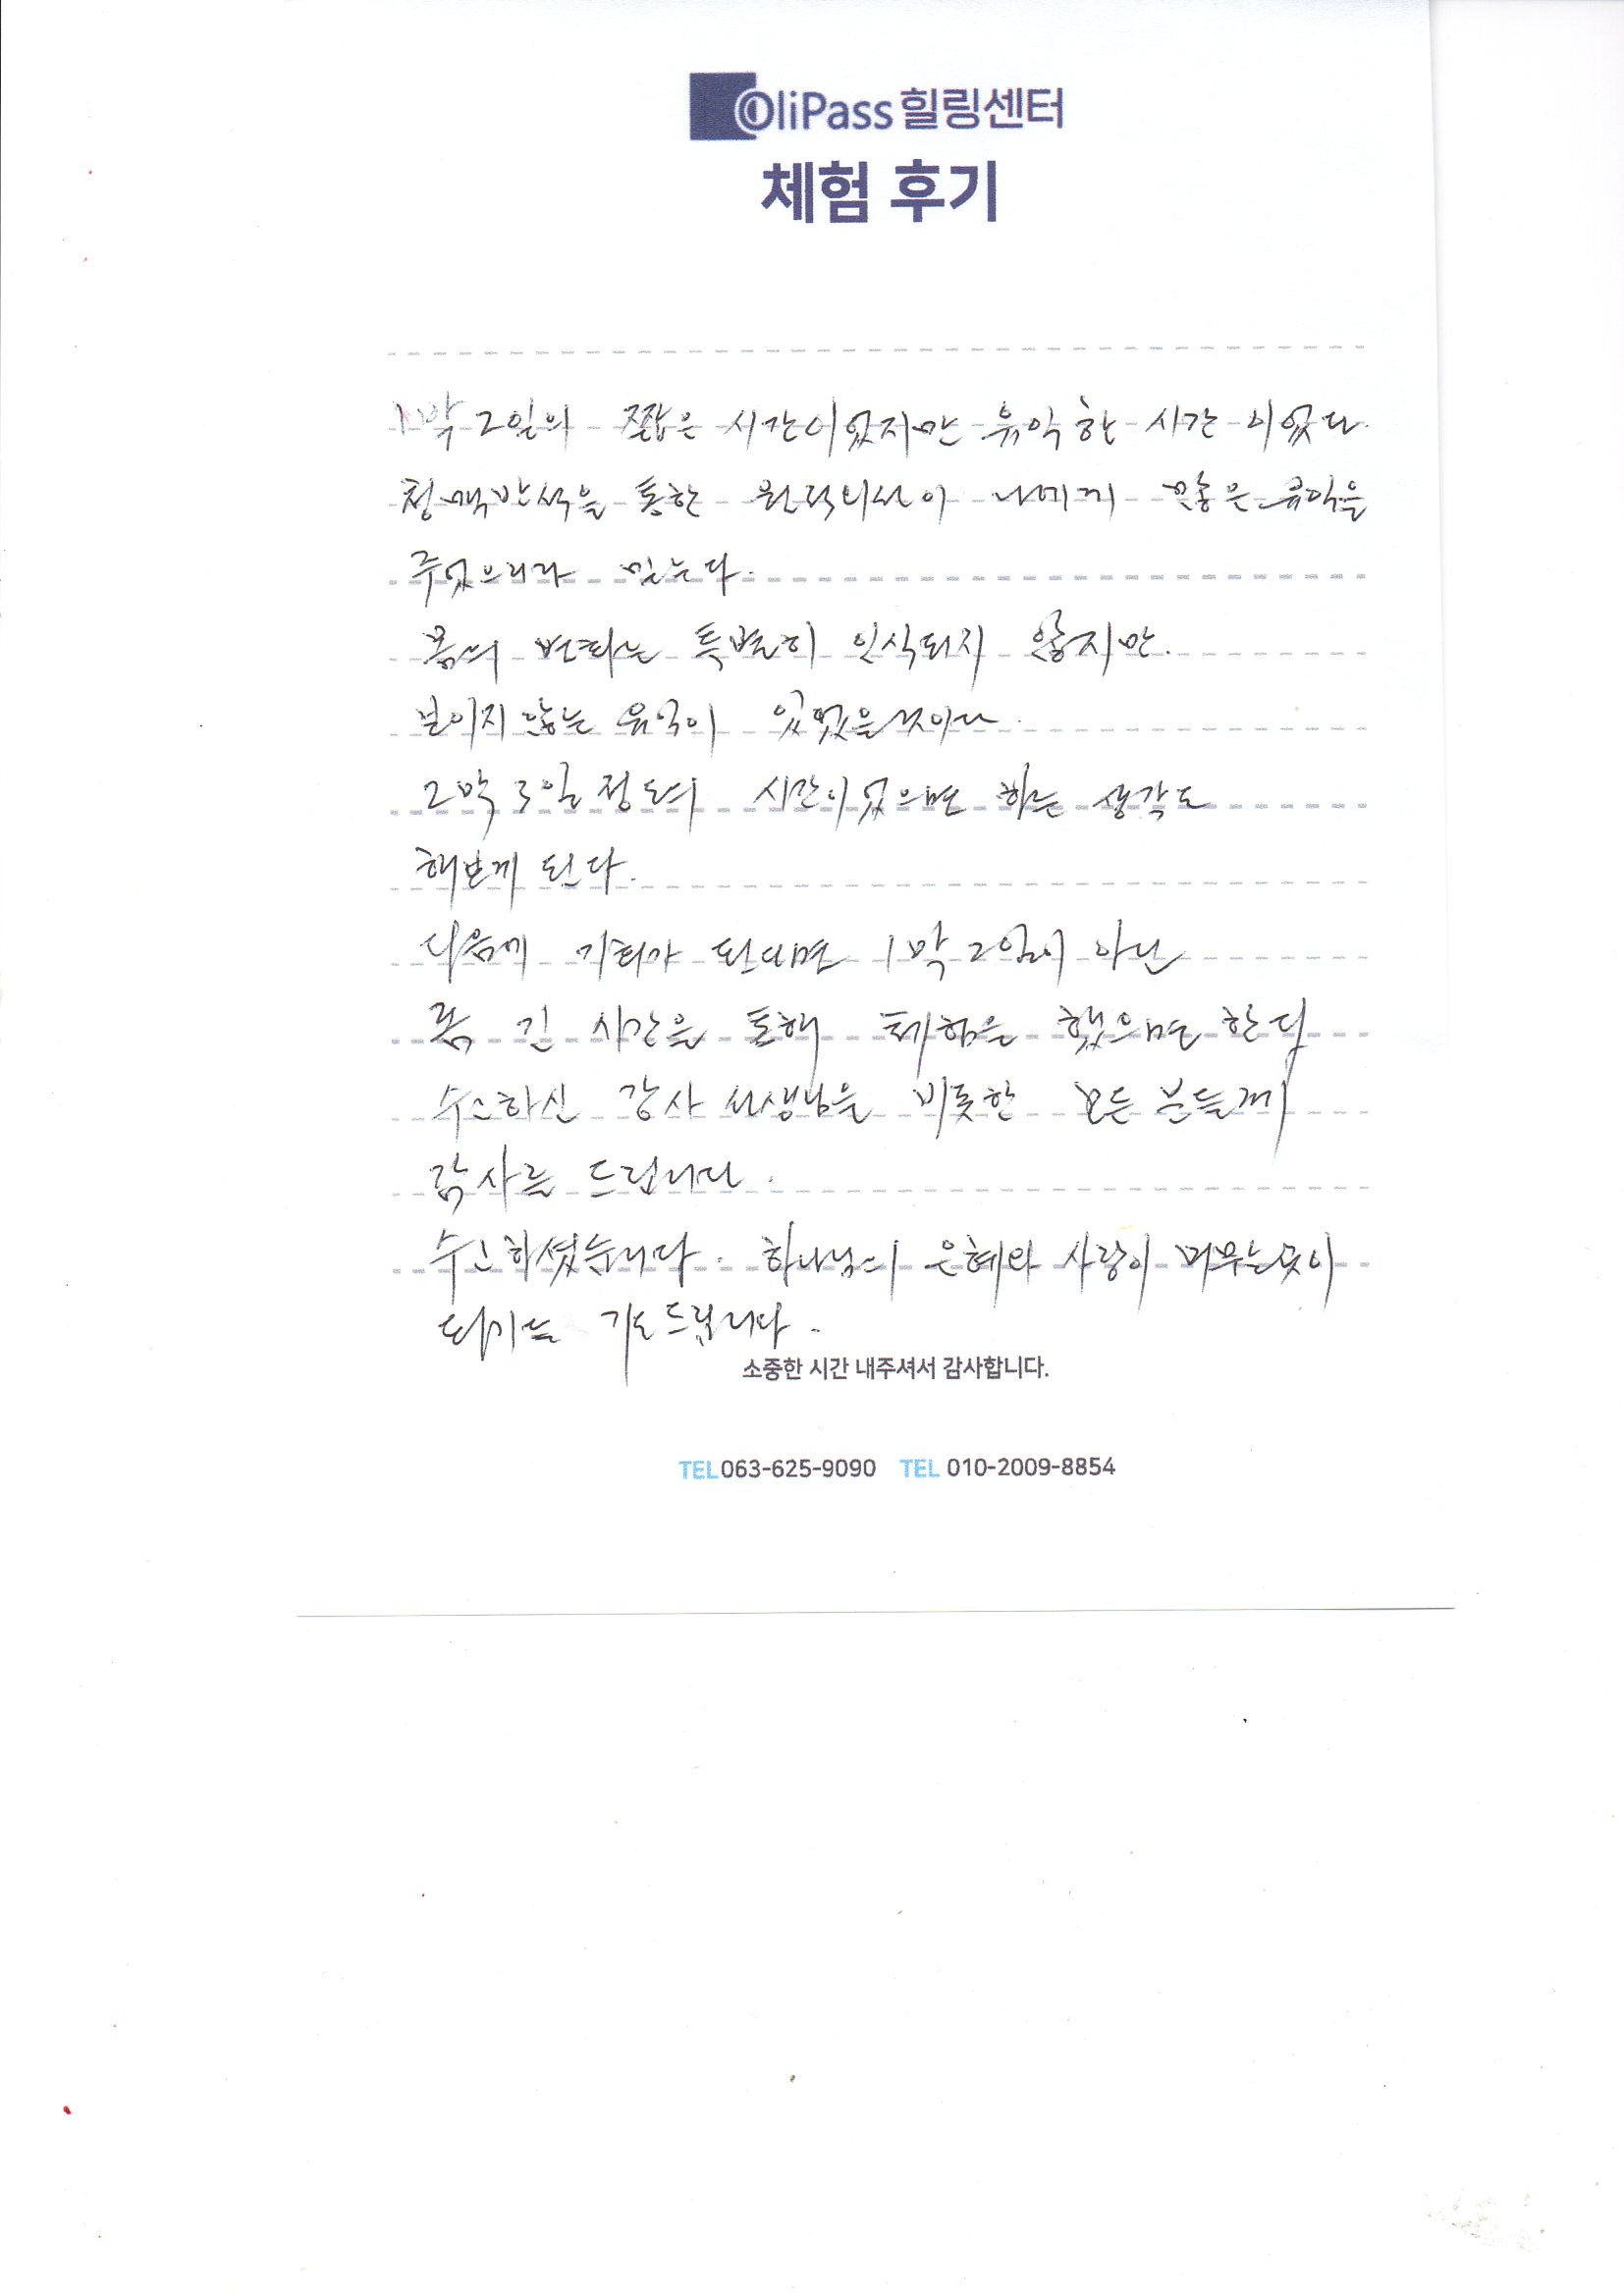 OliPass 힐링센터
체험 후기
1박 2일의 짧은 시간이었지만 유익한 시간 이었다.
청맥반석을 통한 원적외선이 나에게 많은 유익을
주었으리라 믿는다.
몸의 변화는 특별히 인식되지 않지만.
보이지 않는 유익이 있었을것이다.
2박 3일 정도의 시간이 었으면 하는 생각도
해보게 된다.
다음에 기회가 된다면 1박 2일이 아닌
좀 긴 시간을 통해 체험을 했으면 한다
수고하신 강사 선생님을 비롯한 모든 분들께
감사를 드립니다.
수고하셨습니다. 하나님의 은혜와 사랑이 머무는곳이
기도드립니다.
소중한 시간 내주셔서 감사합니다.
TEL 063-625-9090 TEL 010-2009-8854